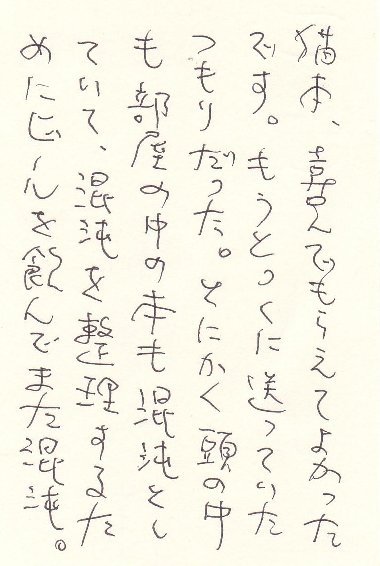 猫本、喜んでもらえてよかった
です。もうとっくに送っていた
つもりだった。とにかく頭の中
も部屋の中の本も混沌とし
ていて、混沌を整理するた
めにビールを飲んでまた混沌。